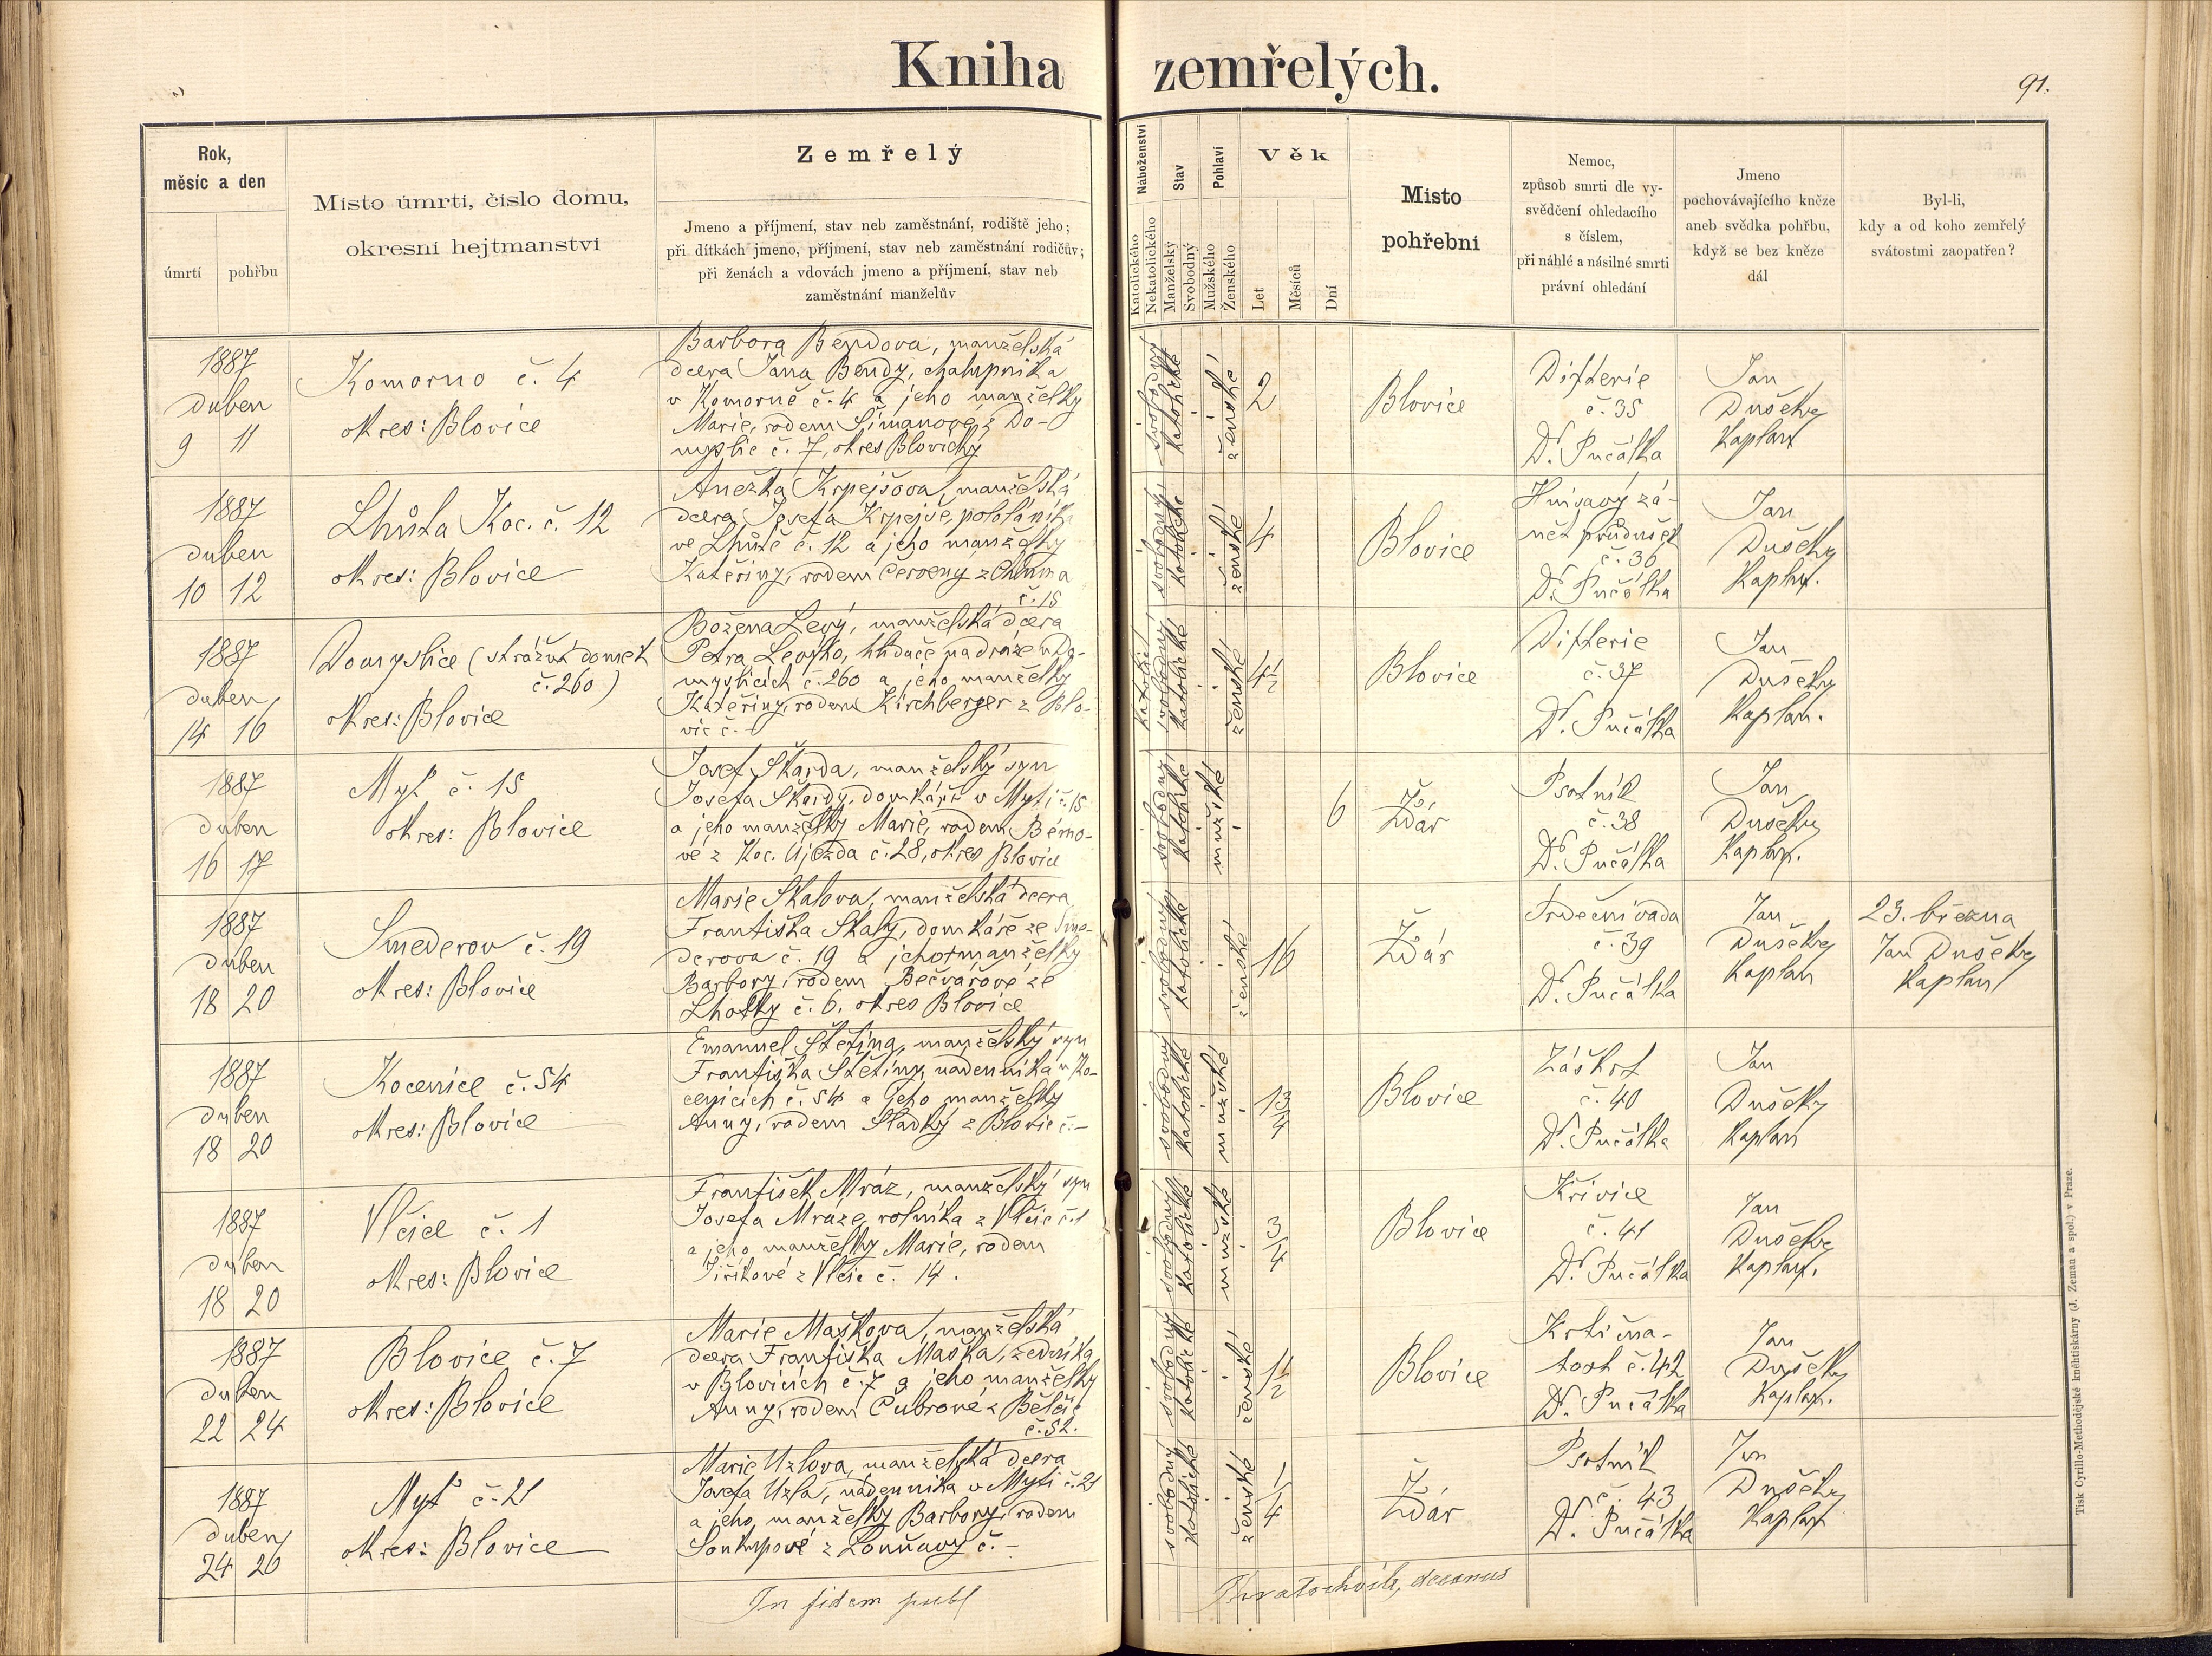 Kniha zemřelých.
91.
Rok,
měsíc a den
úmrtí
pohřbu
Místo úmrtí, číslo domu,
okresní hejtmanství
Zemřelý
Jmeno a příjmení, stav neb zaměstnání, rodiště jeho;
při dítkách jmeno, příjmení, stav neb zaměstnání rodičův;
při ženách a vdovách jmeno a příjmení, stav neb
zaměstnání manželův
Náboženství
Katolického
Nekatolického
Stav
Manželský
Svobodný
Pohlaví
Mužského
Ženského
Věk
Let
Měsíců
Dní
Místo
pohřební
Nemoc,
způsob smrti dle vy-
svědčení ohledacího
s číslem,
při náhlé a násilné smrti
právní ohledání
Jmeno
pochovávajícího kněze
aneb svědka pohřbu,
když se bez kněze
dál
Byl-li,
kdy a od koho zemřelý
svátostmi zaopatřen?
1887
duben
9 11
Komorno č. 4
okres: Blovice
Barbora Bendova, manželská
dcera Jana Bendy, chalupníka
v Komorně č. 4 a jeho manželky
Marie, rodem Šimanové z Do-
myslic č. 7, okres Blovický
svobodný
katolické
ženské
2
Blovice
Difterie
č. 35
Dr. Pučálka
Jan
Dušek
Kaplan
1887
duben
10 12
Lhůta Koc. č. 12
okres: Blovice
Anežka Krpejšova, manželská
dcera Josefa Krpejše, pololáníka
ve Lhůtě č. 12 a jeho manželky
Kateřiny, rodem Červeny z Chluma
č. 15
svobodný
katolické
ženské
4
Blovice
Hnisavý zá-
nět průdušek
č. 36
Dr. Pučálka
Jan
Dušek
Kaplan.
1887
duben
14 16
Domyslice (strážní domek
č. 260)
okres: Blovice
Božena Levý, manželská dcera
Petra Levýho, hlídače na dráze v Do-
myslicích č. 260 a jeho manželky
Kateřiny, rodem Kirchberger z Blo-
vic č. -
svobodný
katolické
ženské
4 1/2
Blovice
Difterie
č. 37
Dr. Pučálka
Jan
Dušek
Kaplan.
1887
duben
16 17
Myť č. 15
okres: Blovice
Josef Škarda, manželský syn
Josefa Škardy, domkáře v Myti č. 15
a jeho manželky Marie, rodem
z Koc. Újezda č. 28, okres Blovice
svobodný
katolické
mužské
6
Ždár
Psotník
č. 38
Dr. Pučálka
Jan
Dušek
Kaplan.
1887
duben
18 20
Smederov č. 19
okres: Blovice
Marie Skalova, manželská dcera
Františka Skaly, domkáře ze Sme-
derova č. 19 a jeho manželky
Barbory, rodem Bečvářové ze
Lhotky č. 6, okres Blovice
svobodný
katolické
ženské
16
Ždár
Srdeční vada
č. 39
Dr. Pučálka
Jan
Dušek
Kaplan
23. března
Jan Dušek
Kaplan
1887
duben
18 20
Kocenice č. 54
okres: Blovice
Emanuel Štětina, manželský syn
Františka Štětiny, nadenníka v Ko-
cenicích č. 54 a jeho manželky
Anny, rodem Sladký z Blovic č. -
svobodný
katolické
mužské
1 3/4
Blovice
Záškrt
č. 40
Dr. Pučálka
Jan
Dušek
Kaplan
1887
duben
18 20
Vlčice č. 1
okres: Blovice
František Mráz, manželský syn
Josefa Mráze, rolníka z Vlčic č. 1
a jeho manželky Marie, rodem
Jiříkové z Vlčic č. 14.
svobodný
katolické
mužské
3/4
Blovice
Křivice
č. 41
Dr. Pučálka
Jan
Dušek
Kaplan.
1887
duben
22 24
Blovice č. 7
okres: Blovice
Marie Maškova, manželská
dcera Františka Maška, zedníka
v Blovicích č. 7 a jeho manželky
Anny, rodem Čubrové z Bělčic
č. 52.
svobodný
katolické
ženské
1 1/2
Blovice
Krtična-
tost č. 42
Dr. Pučálka
Jan
Dušek
Kaplan.
1887
duben
24 26
Myť č. 21
okres: Blovice
Marie Uzlova, manželská dcera
Josefa Uzla, nádenníka v Myti č. 21
a jeho manželky Barbory, rodem
Soukupové z Louňavy č. -
svobodný
katolické
ženské
1/4
Ždár
Psotník
č. 43
Dr. Pučálka
Jan
Dušek
Kaplan
In fidem publ
decanus
Tisk Cyrillo-Methodějské kněhtiskárny (J. Zeman a spol.) v Praze.